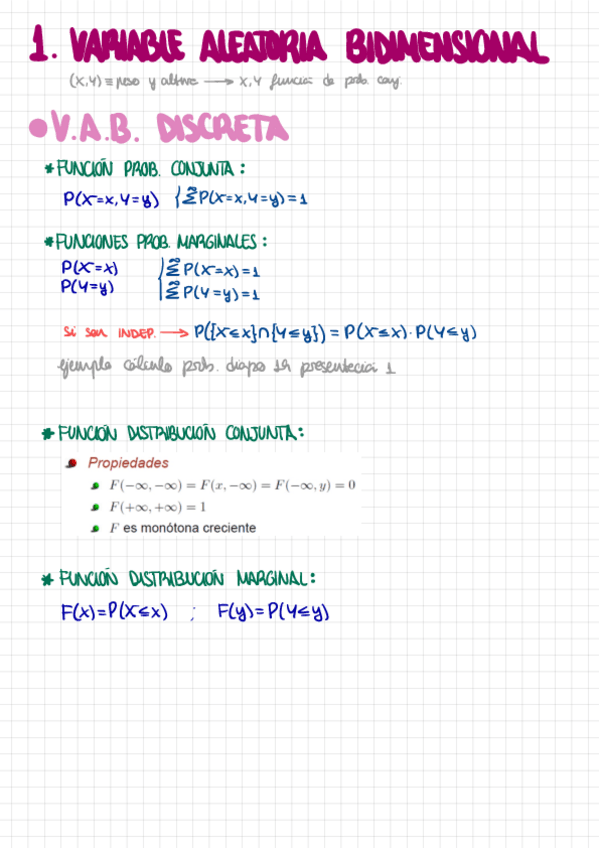 1. VARIABLE ALEATORIA BIDIMENSIONAL
(X,Y) ≡ peso y altura → X,Y función de prob. conj.
• V.A.B. DISCRETA
* FUNCIÓN PROB. CONJUNTA:
P(X=x, Y=y) { ∑ P(X=x, Y=y) = 1
* FUNCIONES PROB. MARGINALES:
P(X=x) { ∑ P(X=x) = 1
P(Y=y) { ∑ P(Y=y) = 1
Si son INDEP. → P({X≤x}∩{Y≤y}) = P(X≤x)·P(Y≤y)
ejemplo cálculo prob. diapo 19 presentación 1
* FUNCIÓN DISTRIBUCIÓN CONJUNTA:
Propiedades
F(−∞, −∞) = F(x, −∞) = F(−∞, y) = 0
F(+∞, +∞) = 1
F es monótona creciente
* FUNCIÓN DISTRIBUCIÓN MARGINAL:
F(x) = P(X≤x) ; F(y) = P(Y≤y)